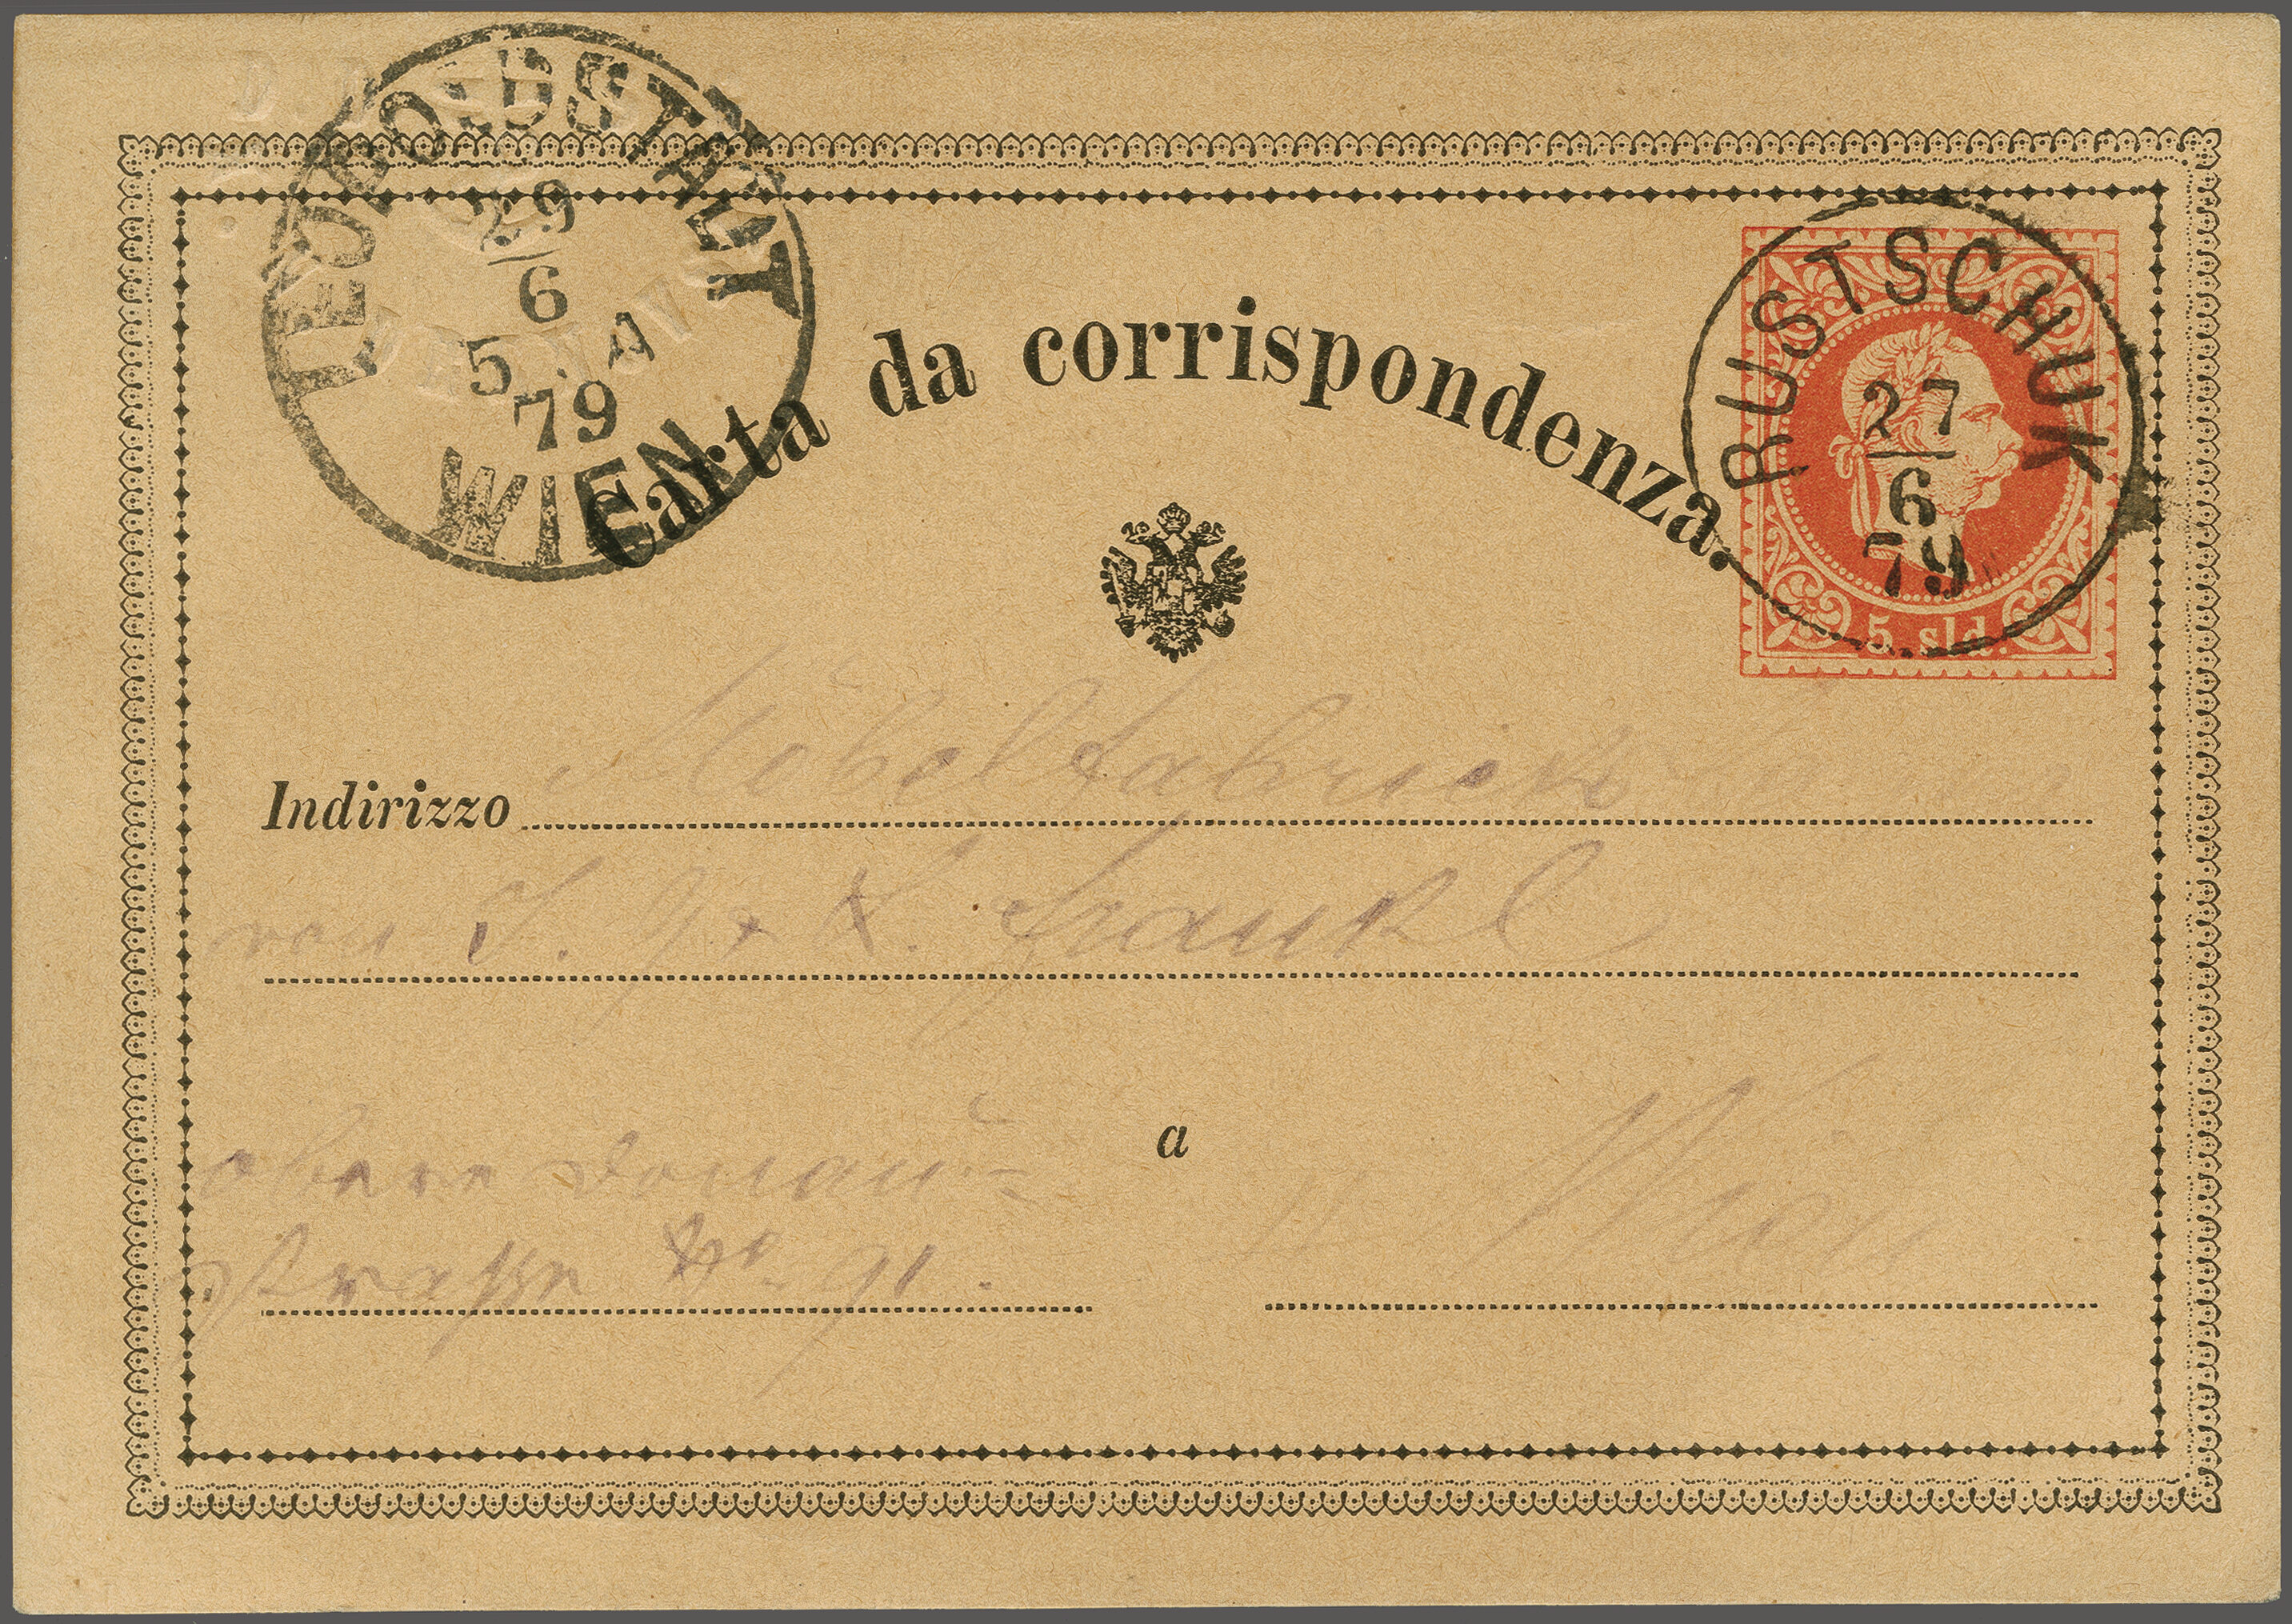 LEOPOLDSTADT
29
6
5 A
79
WIEN
Carta da corrispondenza.
RUSTSCHUK
27
6
79
5 sld.
Indirizzo Möbelfabrick
von J. & L. Frankl
obere Donau-
a Wien
straße No 91.